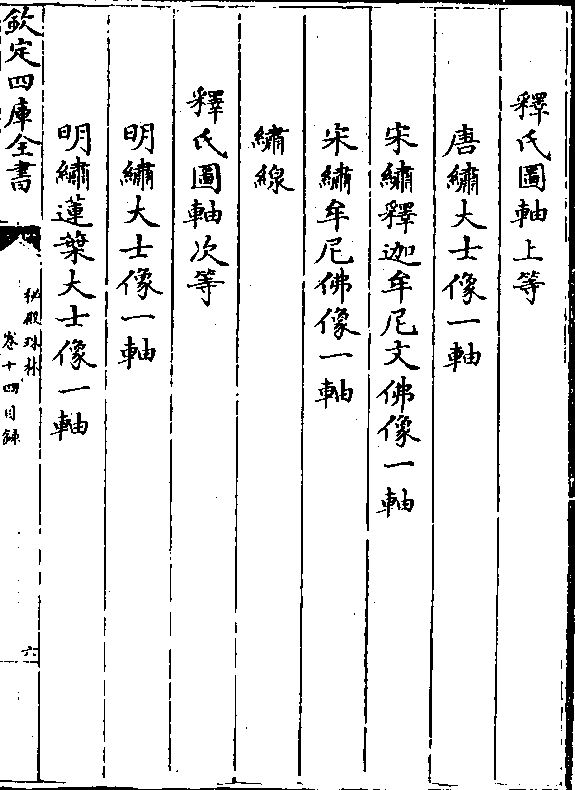 釋氏圖軸上等
唐繡大士像一軸
宋繡釋迦牟尼文佛像一軸
宋繡牟尼佛像一軸
繡線
釋氏圖軸次等
明繡大士像一軸
明繡蓮葉大士像一軸
欽定四庫全書
秘殿珠林
卷十四目錄
六